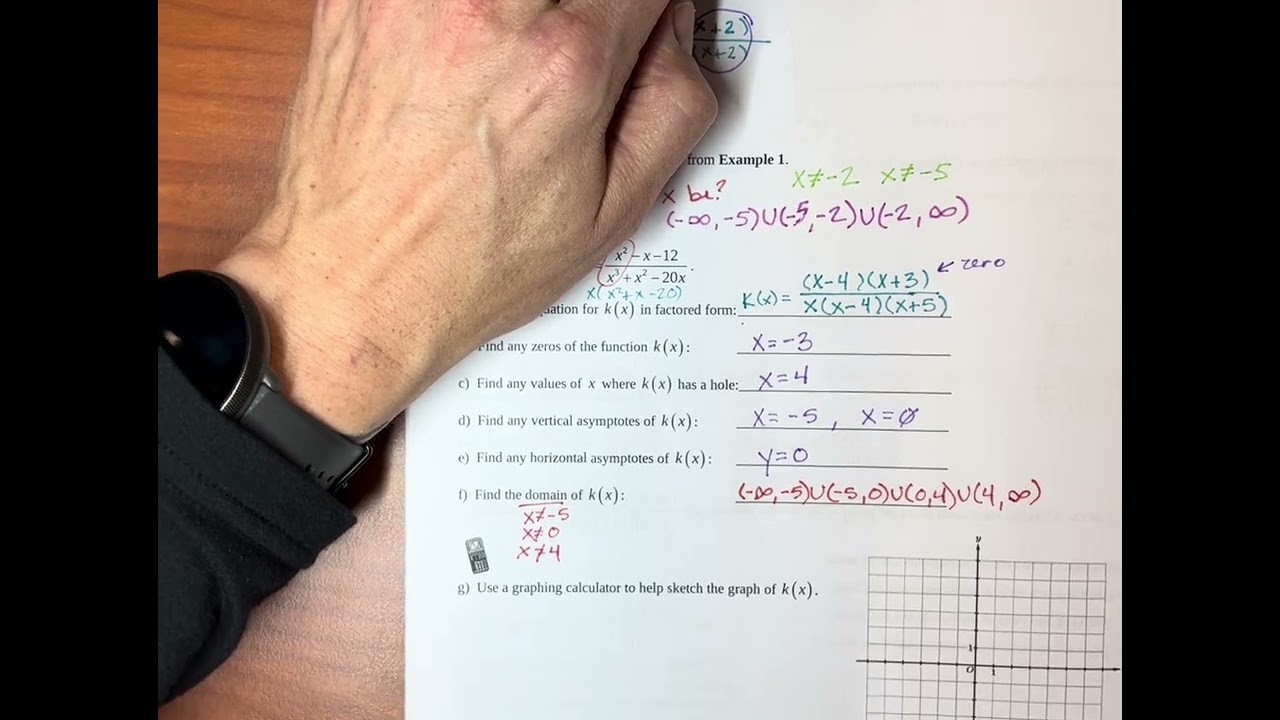 x+2)
(x+2)
from Example 1.
x≠-2 x≠-5
x be?
(-∞,-5)∪(-5,-2)∪(-2,∞)
x²-x-12
x³+x²-20x.
x(x²+x-20)
(x-4)(x+3) ← zero
K(x)=
x(x-4)(x+5)
for k(x) in factored form:
Find any zeros of the function k(x): x=-3
c) Find any values of x where k(x) has a hole: x=4
d) Find any vertical asymptotes of k(x): x=-5, x=0
e) Find any horizontal asymptotes of k(x): y=0
f) Find the domain of k(x): (-∞,-5)∪(-5,0)∪(0,4)∪(4,∞)
x≠-5
x≠0
x≠4
g) Use a graphing calculator to help sketch the graph of k(x).
y
1
O 1